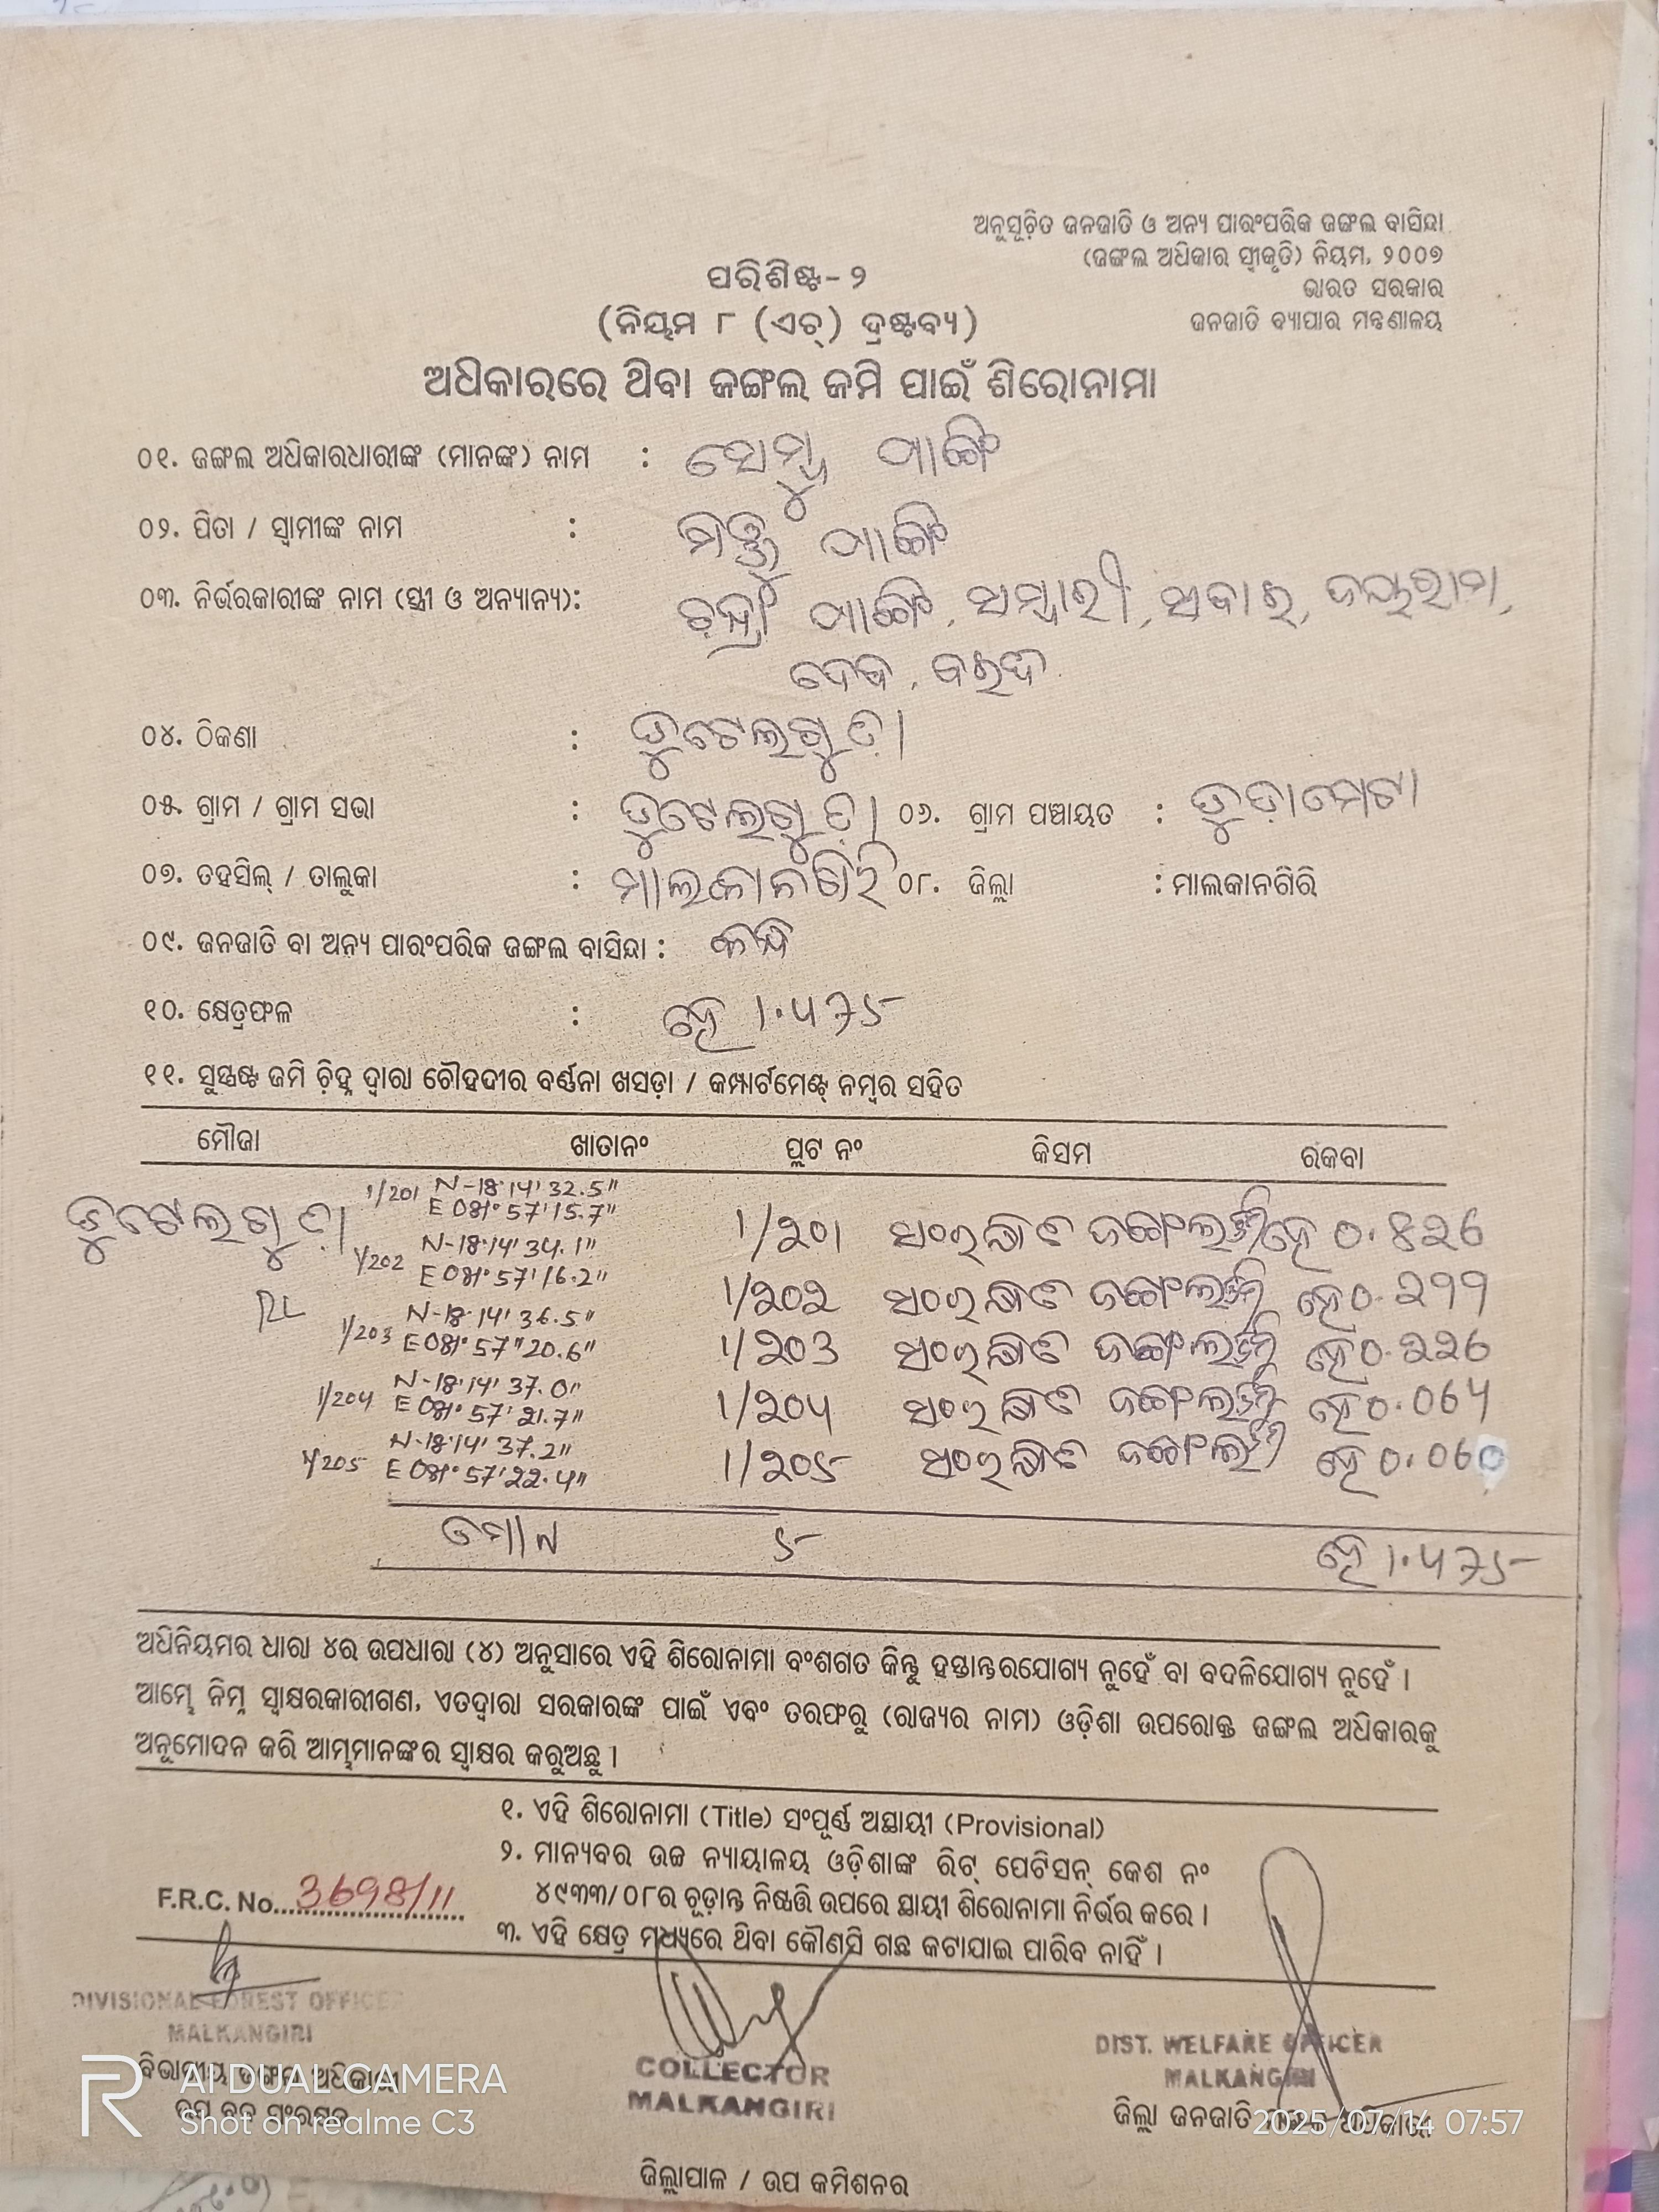 ଅନୁସୂଚିତ ଜନଜାତି ଓ ଅନ୍ୟ ପାରଂପରିକ ଜଙ୍ଗଲ ବାସିନ୍ଦା
(ଜଙ୍ଗଲ ଅଧିକାର ସ୍ୱୀକୃତି) ନିୟମ, ୨୦୦୭
ଭାରତ ସରକାର
ଜନଜାତି ବ୍ୟାପାର ମନ୍ତ୍ରଣାଳୟ
ପରିଶିଷ୍ଟ-୨
(ନିୟମ ୮ (ଏଚ୍) ଦ୍ରଷ୍ଟବ୍ୟ)
ଅଧିକାରରେ ଥିବା ଜଙ୍ଗଲ ଜମି ପାଇଁ ଶିରୋନାମା
୦୧. ଜଙ୍ଗଲ ଅଧିକାରଧାରୀଙ୍କ (ମାନଙ୍କ) ନାମ : ପାଙ୍ଗି
୦୨. ପିତା / ସ୍ୱାମୀଙ୍କ ନାମ : ପାଙ୍ଗି
୦୩. ନିର୍ଭରକାରୀଙ୍କ ନାମ (ସ୍ତ୍ରୀ ଓ ଅନ୍ୟାନ୍ୟ): ପାଙ୍ଗି, ଜୟରାମ,
୦୪. ଠିକଣା : ତୁଟେଲଗୁଡ଼ା
୦୫. ଗ୍ରାମ / ଗ୍ରାମ ସଭା : ତୁଟେଲଗୁଡ଼ା ୦୬. ଗ୍ରାମ ପଞ୍ଚାୟତ :
୦୭. ତହସିଲ୍ / ତାଲୁକା : ମାଲକାନଗିରି ୦୮. ଜିଲ୍ଲା : ମାଲକାନଗିରି
୦୯. ଜନଜାତି ବା ଅନ୍ୟ ପାରଂପରିକ ଜଙ୍ଗଲ ବାସିନ୍ଦା : କନ୍ଧ
୧୦. କ୍ଷେତ୍ରଫଳ : ହେ 1.475
୧୧. ସୁସ୍ପଷ୍ଟ ଜମି ଚିହ୍ନ ଦ୍ୱାରା ଚୌହଦୀର ବର୍ଣ୍ଣନା ଖସଡ଼ା / କମ୍ପାର୍ଟମେଣ୍ଟ୍ ନମ୍ବର ସହିତ
ମୌଜା ଖାତାନଂ ପ୍ଲଟ ନଂ କିସମ ରକବା
ତୁଟେଲଗୁଡ଼ା 1/201 N-18°14' 32.5"
E 081° 57' 15.7" 1/201 ସଂରକ୍ଷିତ ଜଙ୍ଗଲ ହେ 0.826
1/202 N-18°14' 34.1"
E 081° 57' 16.2" 1/202 ସଂରକ୍ଷିତ ଜଙ୍ଗଲ ହେ 0.
RL 1/203 N-18°14' 36.5"
E 081° 57" 20.6" 1/203 ସଂରକ୍ଷିତ ଜଙ୍ଗଲ ହେ 0.226
1/204 N-18°14' 37.0"
E 081° 57' 21.7" 1/204 ସଂରକ୍ଷିତ ଜଙ୍ଗଲ ହେ 0.064
1/205 N-18°14' 37.2"
E 081° 57' 22.4" 1/205 ସଂରକ୍ଷିତ ଜଙ୍ଗଲ ହେ 0.060
5 ହେ 1.475
ଅଧିନିୟମର ଧାରା ୪ର ଉପଧାରା (୪) ଅନୁସାରେ ଏହି ଶିରୋନାମା ବଂଶଗତ କିନ୍ତୁ ହସ୍ତାନ୍ତରଯୋଗ୍ୟ ନୁହେଁ ବା ବଦଳିଯୋଗ୍ୟ ନୁହେଁ ।
ଆମ୍ଭେ ନିମ୍ନ ସ୍ୱାକ୍ଷରକାରୀଗଣ, ଏତଦ୍ୱାରା ସରକାରଙ୍କ ପାଇଁ ଏବଂ ତରଫରୁ (ରାଜ୍ୟର ନାମ) ଓଡ଼ିଶା ଉପରୋକ୍ତ ଜଙ୍ଗଲ ଅଧିକାରକୁ
ଅନୁମୋଦନ କରି ଆମ୍ଭମାନଙ୍କର ସ୍ୱାକ୍ଷର କରୁଅଛୁ ।
୧. ଏହି ଶିରୋନାମା (Title) ସଂପୂର୍ଣ୍ଣ ଅସ୍ଥାୟୀ (Provisional)
୨. ମାନ୍ୟବର ଉଚ୍ଚ ନ୍ୟାୟାଳୟ ଓଡ଼ିଶାଙ୍କ ରିଟ୍ ପେଟିସନ୍ କେଶ ନଂ
୪୯୩୩/୦୮ର ଚୂଡ଼ାନ୍ତ ନିଷ୍ପତ୍ତି ଉପରେ ସ୍ଥାୟୀ ଶିରୋନାମା ନିର୍ଭର କରେ ।
F.R.C. No. 3698/11
୩. ଏହି କ୍ଷେତ୍ର ମଧ୍ୟରେ ଥିବା କୌଣସି ଗଛ କଟାଯାଇ ପାରିବ ନାହିଁ ।
DIVISIONAL FOREST OFFICER
MALKANGIRI
ବିଭାଗୀୟ ଜଙ୍ଗଲ ଅଧିକାରୀ
ଉପ ବନ ସଂରକ୍ଷକ
COLLECTOR
MALKANGIRI
ଜିଲ୍ଲାପାଳ / ଉପ କମିଶନର
DIST. WELFARE OFFICER
MALKANGIRI
ଜିଲ୍ଲା ଜନଜାତି ଅଧିକାରୀ
AI DUAL CAMERA
Shot on realme C3
2025/07/14 07:57